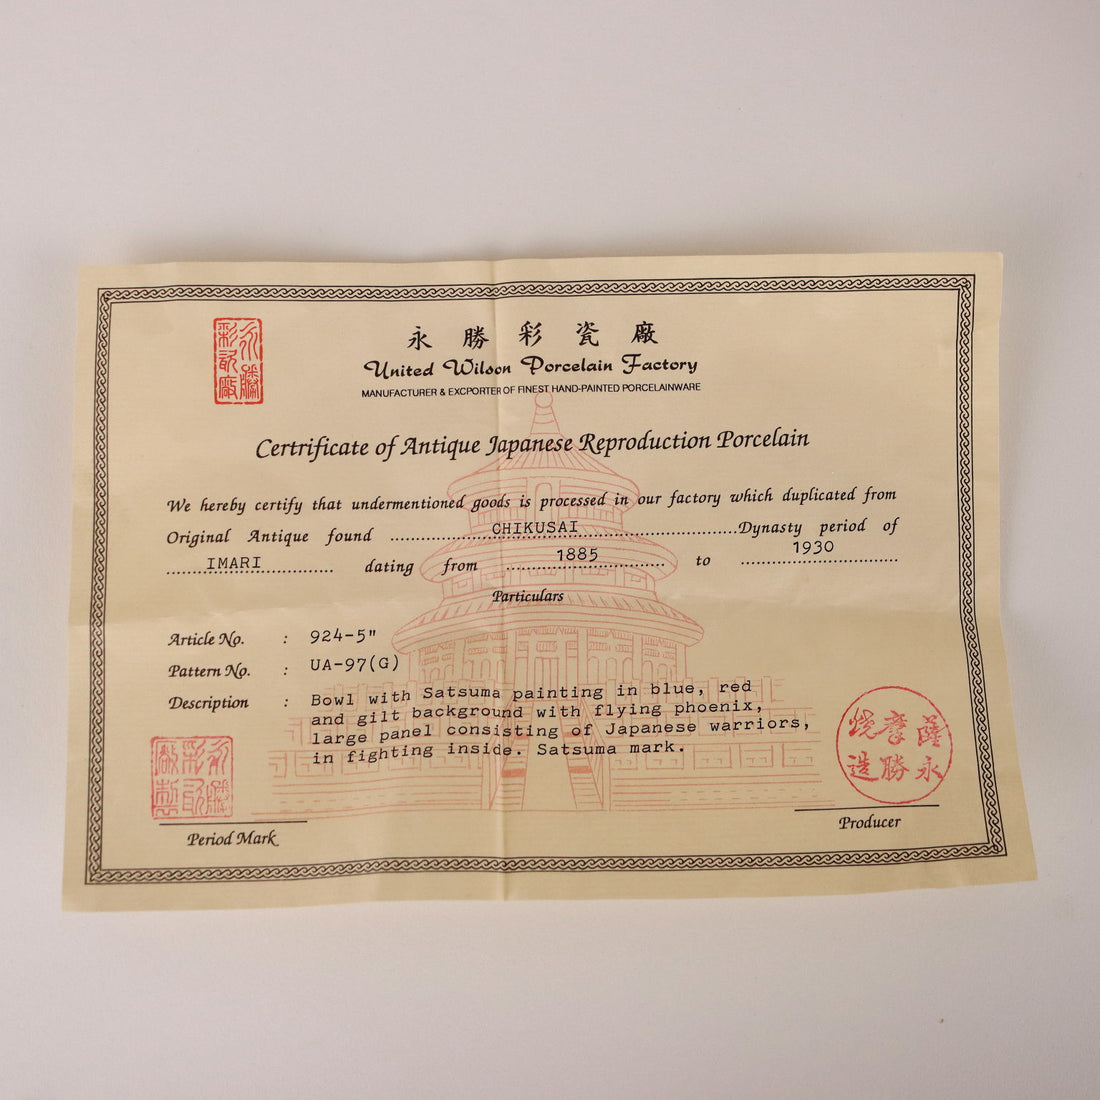 永勝彩瓷廠
United Wilson Porcelain Factory
MANUFACTURER & EXCPORTER OF FINEST HAND-PAINTED PORCELAINWARE
Certrificate of Antique Japanese Reproduction Porcelain
We hereby certify that undermentioned goods is processed in our factory which duplicated from
Original Antique found CHIKUSAI Dynasty period of
IMARI dating from 1885 to 1930
Particulars
Article No. : 924-5"
Pattern No. : UA-97(G)
Description : Bowl with Satsuma painting in blue, red
and gilt background with flying phoenix,
large panel consisting of Japanese warriors,
in fighting inside. Satsuma mark.
薩摩燒
永勝造
Period Mark
Producer